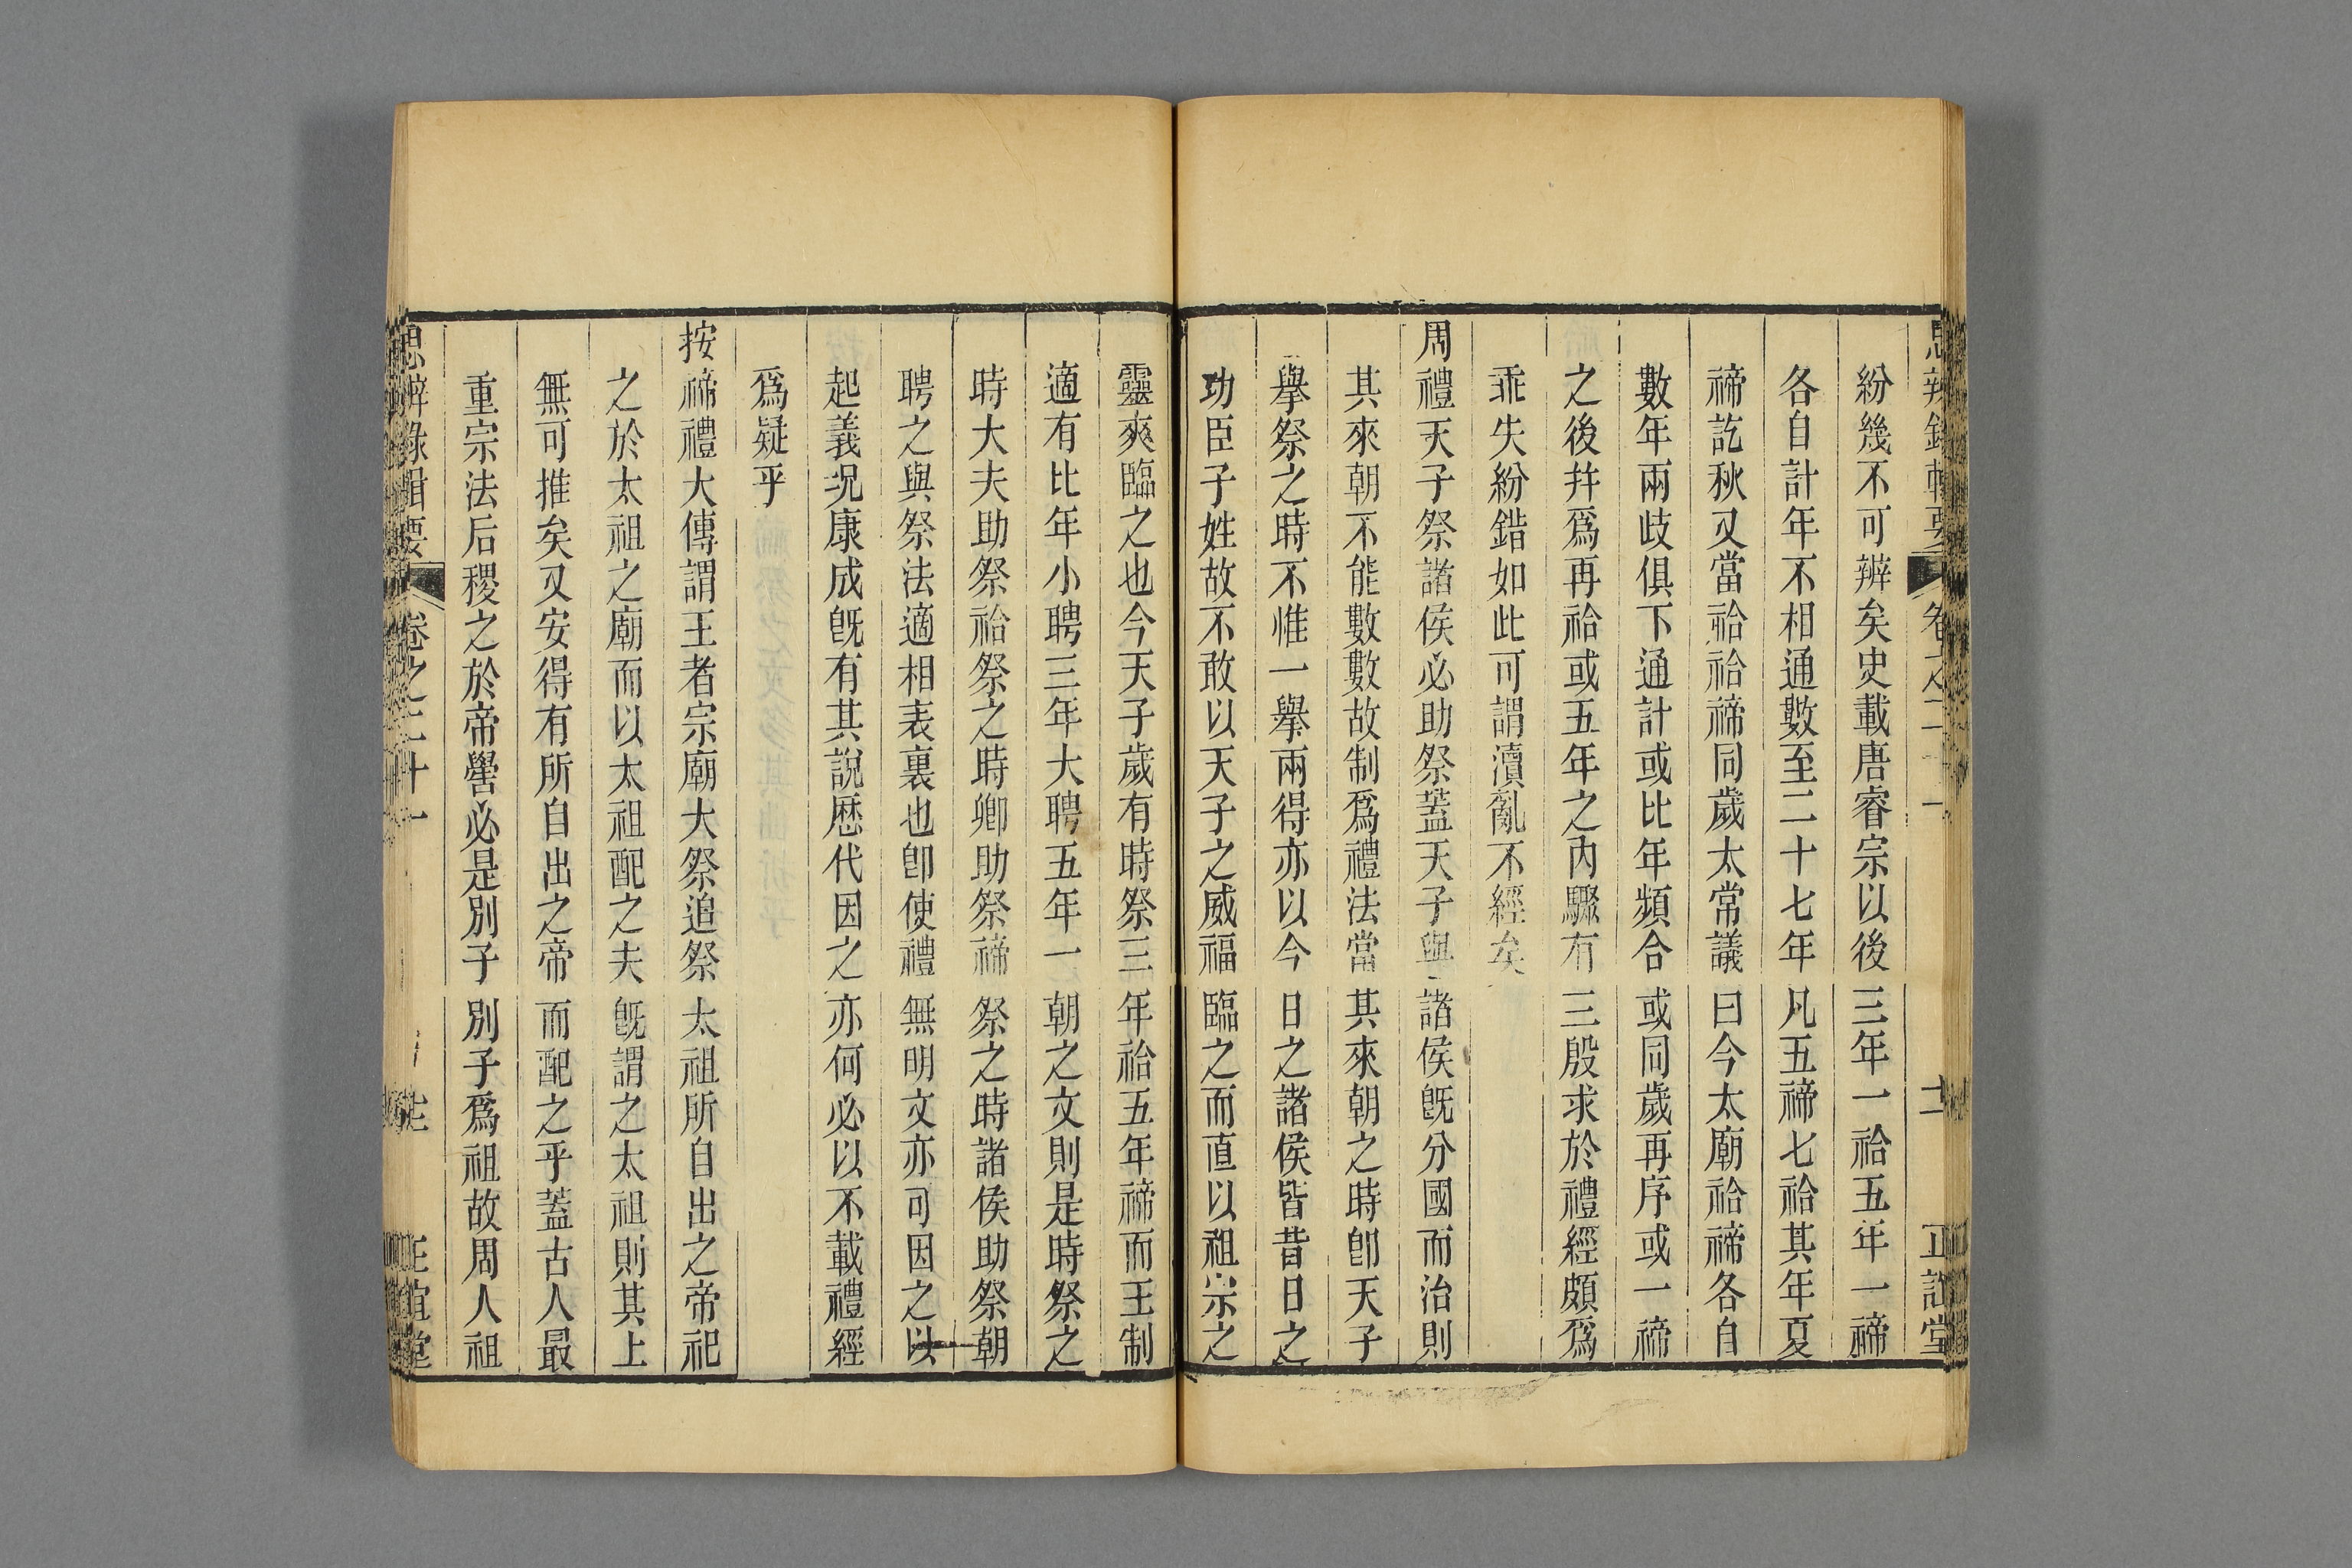 思辨錄輯要 卷之二十一 正誼堂
紛幾不可辨矣史載唐睿宗以後三年一祫五年一禘
各自計年不相通數至二十七年凡五禘七祫其年夏
禘訖秋又當祫祫禘同歲太常議曰今太廟祫禘各自
數年兩歧俱下通計或比年頻合或同歲再序或一禘
之後并爲再祫或五年之內驟有三殷求於禮經頗爲
乖失紛錯如此可謂瀆亂不經矣
周禮天子祭諸侯必助祭蓋天子與諸侯旣分國而治則
其來朝不能數數故制爲禮法當其來朝之時卽天子
舉祭之時不惟一舉兩得亦以今日之諸侯皆昔日之
功臣子姓故不敢以天子之威福臨之而直以祖宗之
靈爽臨之也今天子歲有時祭三年祫五年禘而王制
適有比年小聘三年大聘五年一朝之文則是時祭之
時大夫助祭祫祭之時卿助祭禘祭之時諸侯助祭朝
聘之與祭法適相表裏也卽使禮無明文亦可因之以
起義況康成旣有其說歷代因之亦何必以不載禮經
爲疑乎
按禘禮大傳謂王者宗廟大祭追祭太祖所自出之帝祀
之於太祖之廟而以太祖配之夫旣謂之太祖則其上
無可推矣又安得有所自出之帝而配之乎蓋古人最
重宗法后稷之於帝嚳必是別子別子爲祖故周人祖
思辨錄輯要 卷之二十一 正誼堂